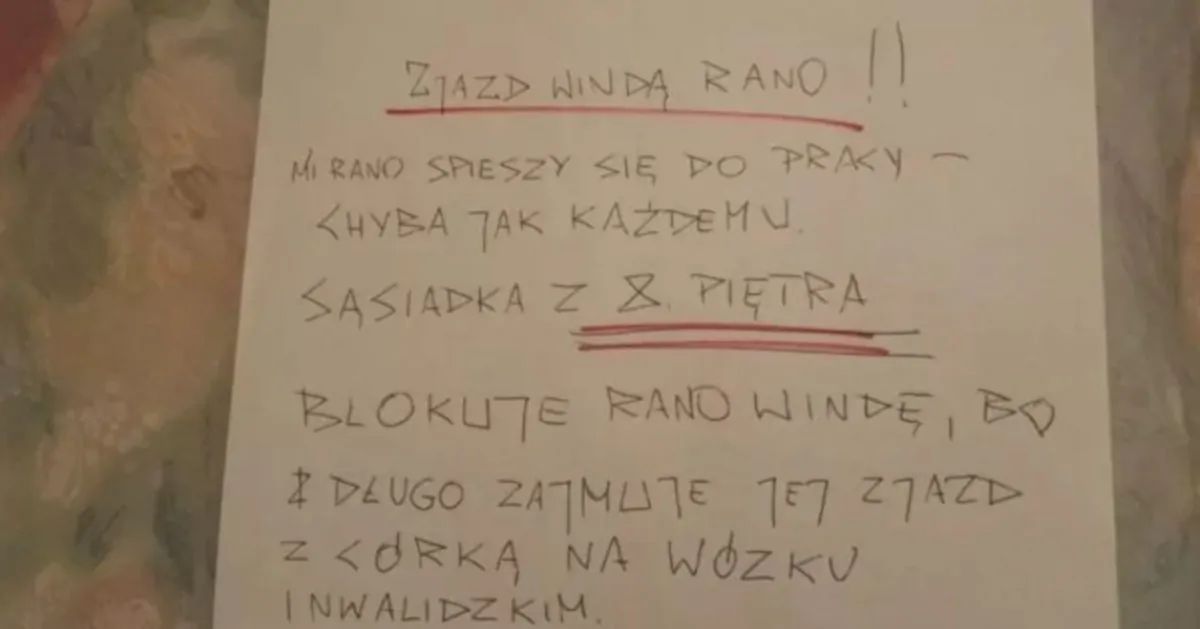 ZJAZD WINDĄ RANO !!
MI RANO SPIESZY SIĘ DO PRACY –
CHYBA JAK KAŻDEMU.
SĄSIADKA Z 8. PIĘTRA
BLOKUJE RANO WINDĘ, BO
DŁUGO ZAJMUJE JEJ ZJAZD
Z CÓRKĄ NA WÓZKU
INWALIDZKIM.